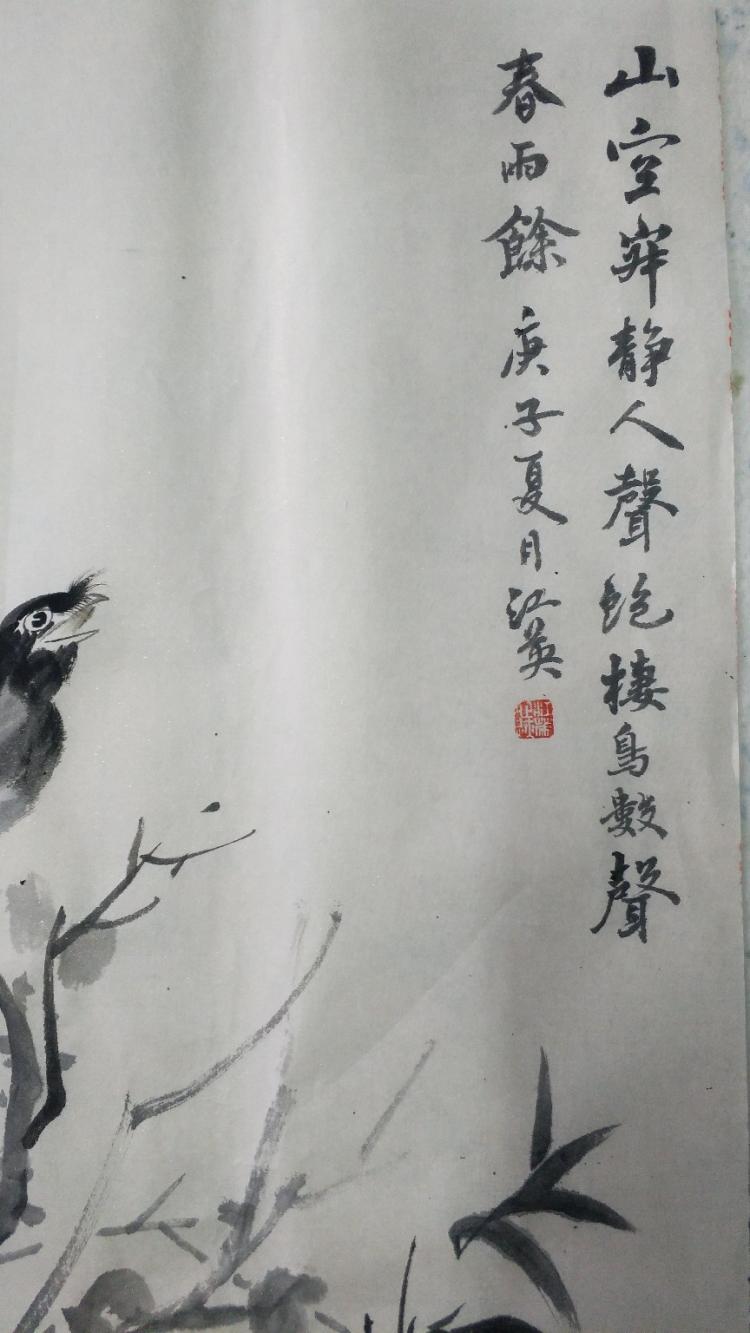 山空寂静人聲絶棲鳥數聲
春雨餘庚子夏月江英